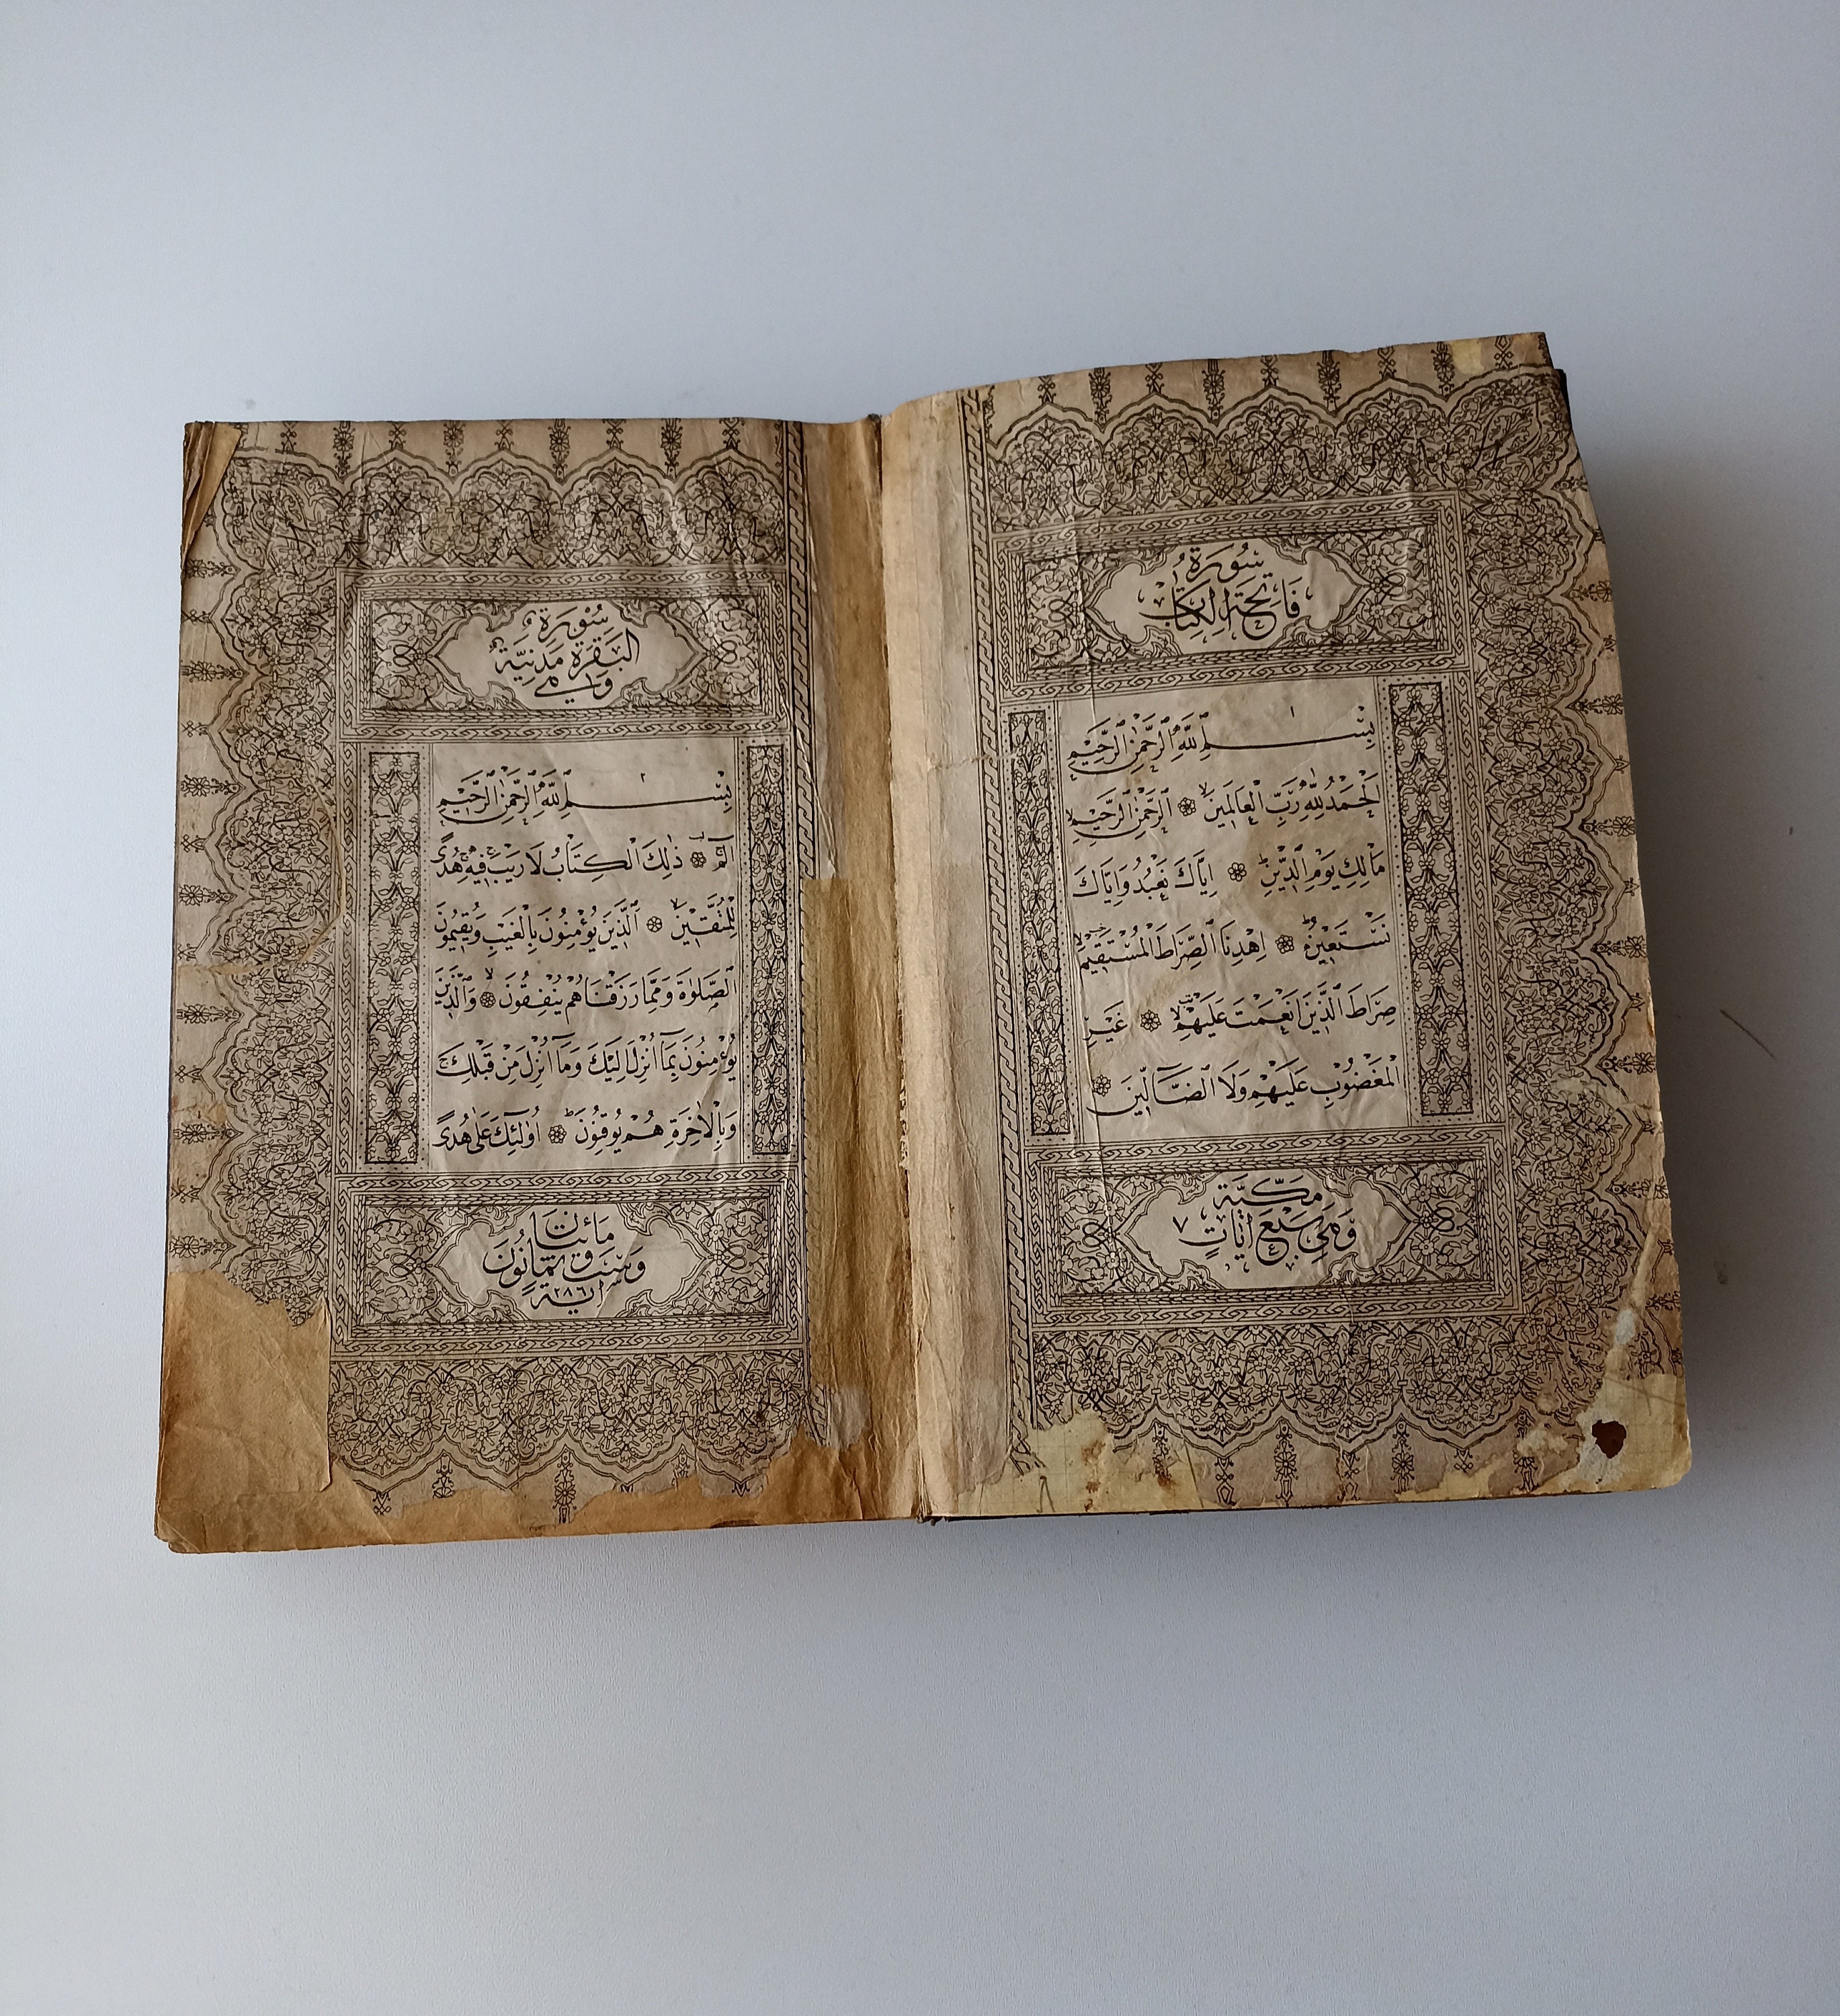 سُورَةُ
فَاتِحَةِ الْكِتَابِ
١
بِسْمِ اللّٰهِ الرَّحْمٰنِ الرَّحِيمِ
اَلْحَمْدُ لِلّٰهِ رَبِّ الْعَالَمِينَۙ ۞ اَلرَّحْمٰنِ الرَّحِيمِۙ
مَالِكِ يَوْمِ الدِّينِۜ ۞ اِيَّاكَ نَعْبُدُ وَاِيَّاكَ
نَسْتَعِينُۜ ۞ اِهْدِنَا الصِّرَاطَ الْمُسْتَقِيمَۙ
صِرَاطَ الَّذِينَ اَنْعَمْتَ عَلَيْهِمْۙ ۞ غَيْرِ
الْمَغْضُوبِ عَلَيْهِمْ وَلَا الضَّالِّينَ ۞
مَكِّيَّةٌ
وَهِيَ سَبْعُ اٰيَاتٍ ٧
سُورَةُ
الْبَقَرَةِ مَدَنِيَّةٌ
وَهِيَ
٢
بِسْمِ اللّٰهِ الرَّحْمٰنِ الرَّحِيمِ
الٓمٓ ۞ ذٰلِكَ الْكِتَابُ لَا رَيْبَۚ فِيهِۚ هُدًى
لِلْمُتَّقِينَۙ ۞ اَلَّذِينَ يُؤْمِنُونَ بِالْغَيْبِ وَيُقِيمُونَ
الصَّلٰوةَ وَمِمَّا رَزَقْنَاهُمْ يُنْفِقُونَۙ ۞ وَالَّذِينَ
يُؤْمِنُونَ بِمَٓا اُنْزِلَ اِلَيْكَ وَمَٓا اُنْزِلَ مِنْ قَبْلِكَۚ
وَبِالْاٰخِرَةِ هُمْ يُوقِنُونَۜ ۞ اُو۬لٰٓئِكَ عَلٰى هُدًى
مِائَتَانِ
وَسِتٌّ وَثَمَانُونَ
اٰيَةً ٢٨٦